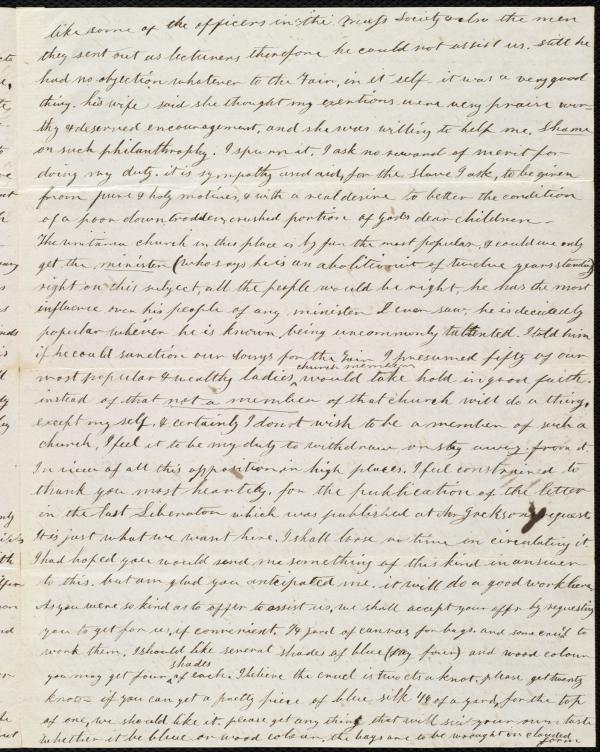 like some of the officers in the Mass Society & also the men
they sent out as lecturers therefore he could not assist us. still he
had no objection whatever to the Fair, in it self it was a very good
thing. his wife said she thought my exertions were very praise wor-
thy & deserved encouragement, and she was willing to help me. Shame
on such philanthropy. I spurn it. I ask no reward of merit for
doing my duty. it is sympathy and aid, for the slave I ask, to be given
from pure & holy motives, & with a real desire to better the condition
of a poor down trodden, crushed portion of Gods dear children.
The unitarian church in this place is by far the most popular, & could we only
get the minister (who says he is an abolitionist of twelve years standing)
right on this subject, all the people would be right, he has the most
influence over his people of any minister I ever saw, he is decidedly
popular wherever he is known, being uncommonly talented. I told him
if he could sanction our doings for the Fair I presumed fifty of our
church members
most popular & wealthy ladies, would take hold in good faith.
instead of that not a member of that church will do a thing,
except my self, & certainly I don't wish to be a member of such a
church, I feel it to be my duty to withdraw or stay away from it
In view of all this opposition in high places. I feel constrained to
thank you most heartily, for the publication of the letter
in the last Liberator which was published at Mr Jacksons request
It is just what we want here. I shall lose no time in circulating it
I had hoped you would send me something of this kind in answer
to this. but am glad you anticipated me. it will do a good work here,
As you were so kind as to offer to assist us, we shall accept your offr by requesting
you to get for us, if convenient, 1/4 yard of canvas for bags. and some cruel to
work them, I should like several shades of blue (say four) and wood colour
shades
you may get four of each. I believe the cruel is two cts a knot, please get twenty
knots if you can get a pretty piece of blue silk 1/8 of a yard, for the top
of one, we should like it. please get any thing that will suit your own taste
whether it be blue or wood colour, the bags are to be wrought in clouded
form